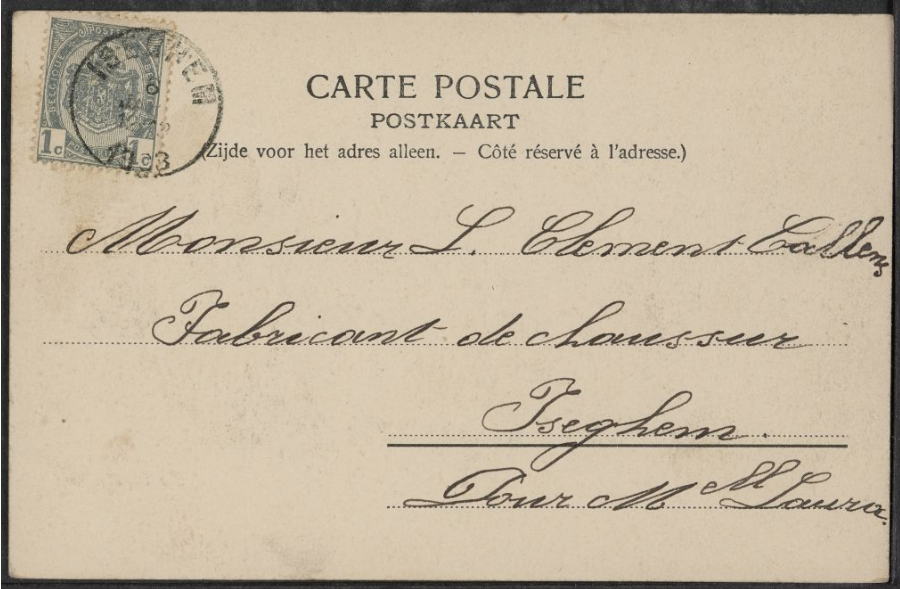 ISEGHEM
1903
1c 1c
CARTE POSTALE
POSTKAART
(Zijde voor het adres alleen. — Côté réservé à l'adresse.)
Monsieur L. Clement Callens
Fabricant de chaussur
Iseghem.
Pour M Mll Laura.